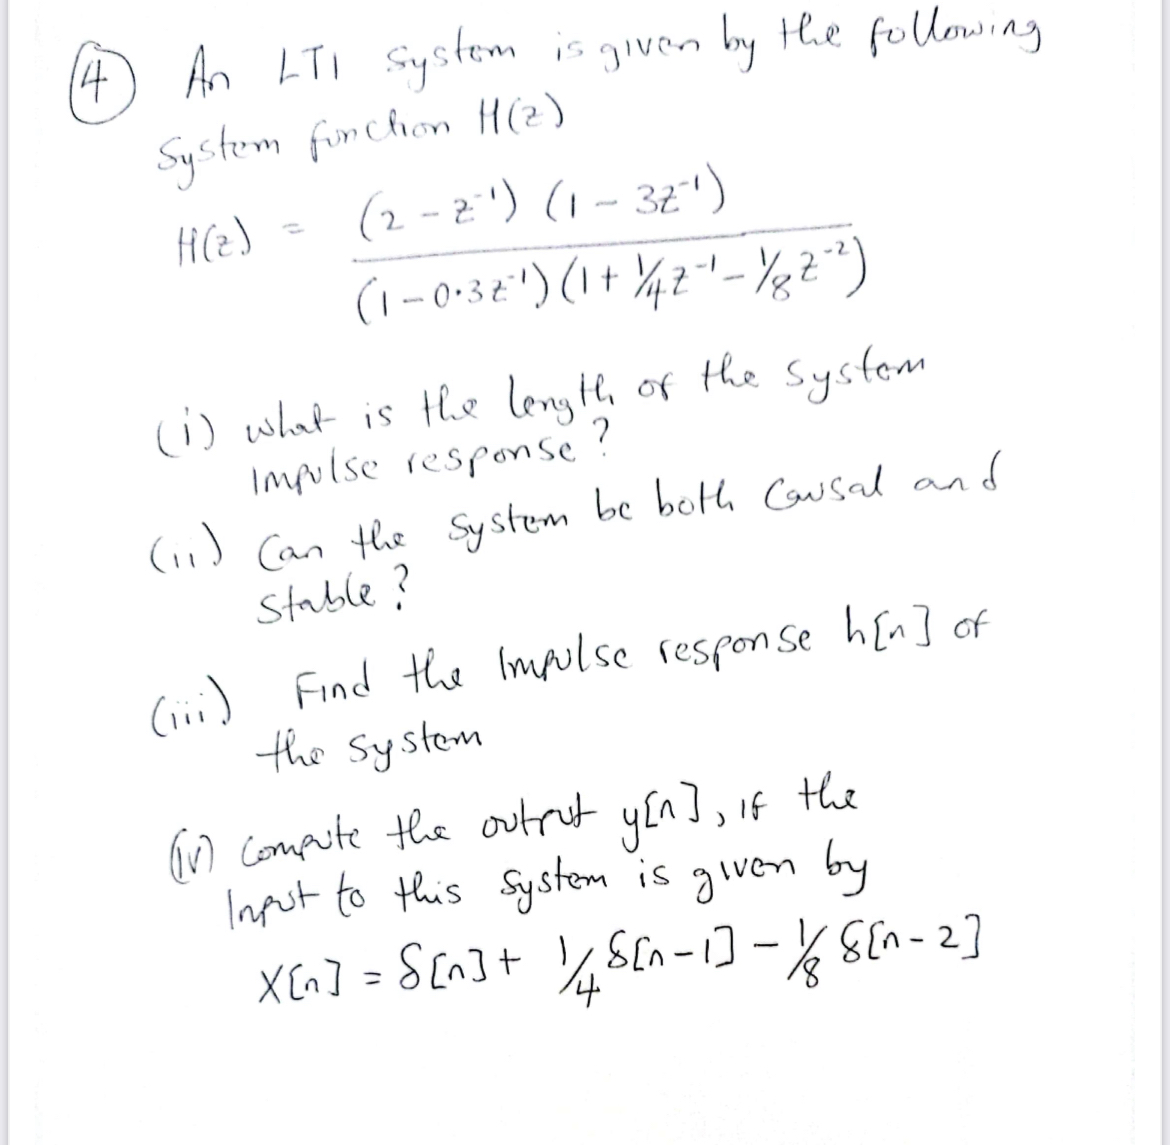 ④ An LTI system is given by the following
System function H(z)
H(z) = (2 - z⁻¹) (1 - 3z⁻¹)
(1 - 0.3z⁻¹) (1 + 1/4 z⁻¹ - 1/8 z⁻²)
(i) what is the length of the system
Impulse response?
(ii) Can the system be both causal and
stable?
(iii) Find the Impulse response h[n] of
the system
(iv) compute the output y[n], if the
Input to this system is given by
X[n] = δ[n] + 1/4 δ[n-1] - 1/8 δ[n-2]